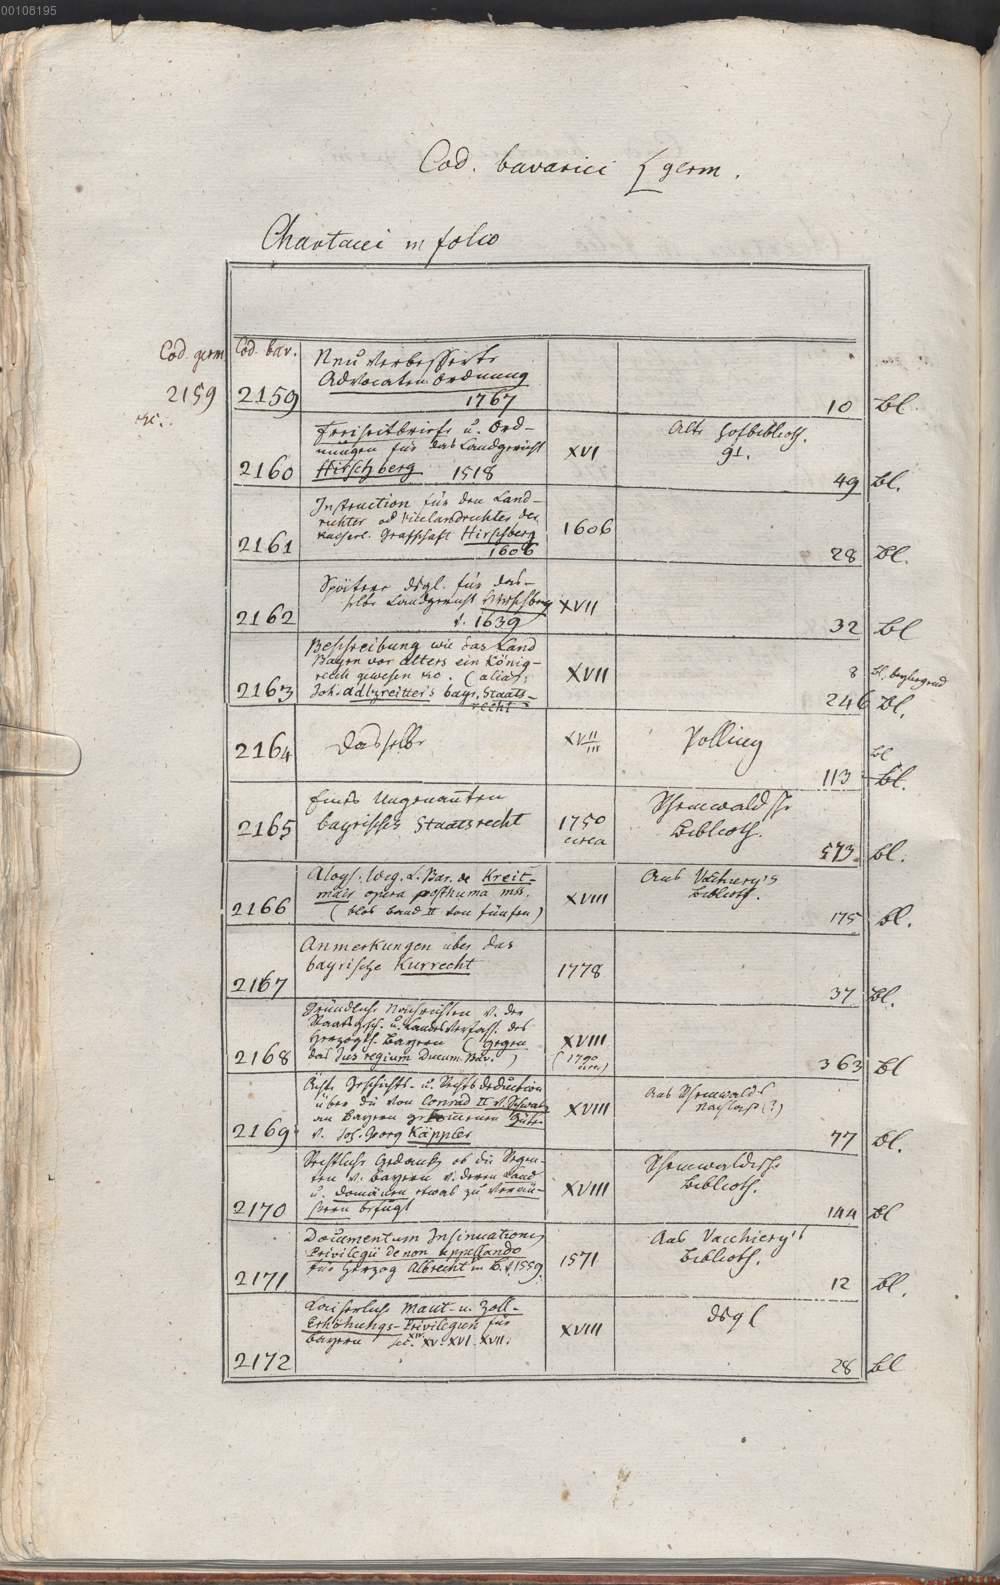 00108195
Cod. bavarici { germ.
Chartacei in folio
Cod. germ. Cod. bav.
2159 etc.
2159 Neu verbesserte
Advocaten Ordnung
1767 10 Bl
2160 Freiheitbriefe u. Ord-
nungen für das Landgericht
Hirschberg 1518 XVI Alte Hofbiblioth.
49 Bl.
2161 Instruction für den Land-
richter od Vicelandrichter der
kaiserl. Grafschaft Hirschberg
1606 1606 28 Bl.
2162 Spätere dsgl. für das-
selbe Landgericht Hirschberg
v. 1639 XVII 32 Bl
2163 Beschreibung wie das Land
Bayrn vor alters ein König-
reich gewesen etc. (alias:
Joh. Adlzreitter's bayr. Staats-
recht XVII 8 Bl. beyliegend
246 Bl.
2164 Dasselbe XVII/III Polling
Bl
113 Bl.
2165 Eines Ungenanten
bayrisches Staatsrecht 1750
circa Biblioth.
573. Bl.
2166 Aloys. Wig. L. Bar. de Kreit-
mair opera posthuma mss.
(blos Band II von fünfen) XVIII Aus Vachiery's
Biblioth.
175 Bl.
2167 Anmerkungen über das
bayrische Kurrecht 1778 37 Bl.
2168 Gründliche Nachrichten v. der
Staatsgesch. u. Landesverfass. des
Herzogth. Bayern (gegen
das Jus regium Ducum Bav.) XVIII
(1790
circ.) 363 Bl
2169 Ächte Geschichts- u. Rechtsdeduction
über die von Conrad II v. Schwab.
an Bayern gekommenen Güter
v. Joh. Georg Käppler XVIII Aus
Nachlass (?)
77 Bl.
2170 Rechtliche Gedanken ob die Regen-
ten v. Bayern v. deren Land
u. Domänen etwas zu veräu-
ssern befugt XVIII Biblioth.
144 Bl
2171 Documentum Insinuationis
Privilegii de non appellando
für Herzog Albrecht in B. d. 1559. 1571 Aus Vacchiery's
Biblioth.
12 Bl.
2172 Kaiserliche Maut- u. Zoll-
Erhöhungs-Privilegien für
Bayern sec. XIV. XV. XVI. XVII. XVIII dsgl
28 Bl